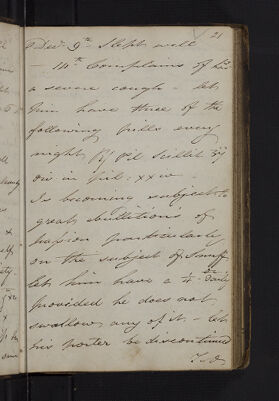 21
Decr. 9th. Slept well
— 14th Complains of
a severe cough — let
him have three of the
following pills every
night Rx Pil Scillæ
div in pil: xxiv —
Is becoming subject to
great ebullitions of
passion particularly
on the subject of Snuff
let him have a ¼ oz daily
provided he does not
swallow any of it — let
his porter be discontinued